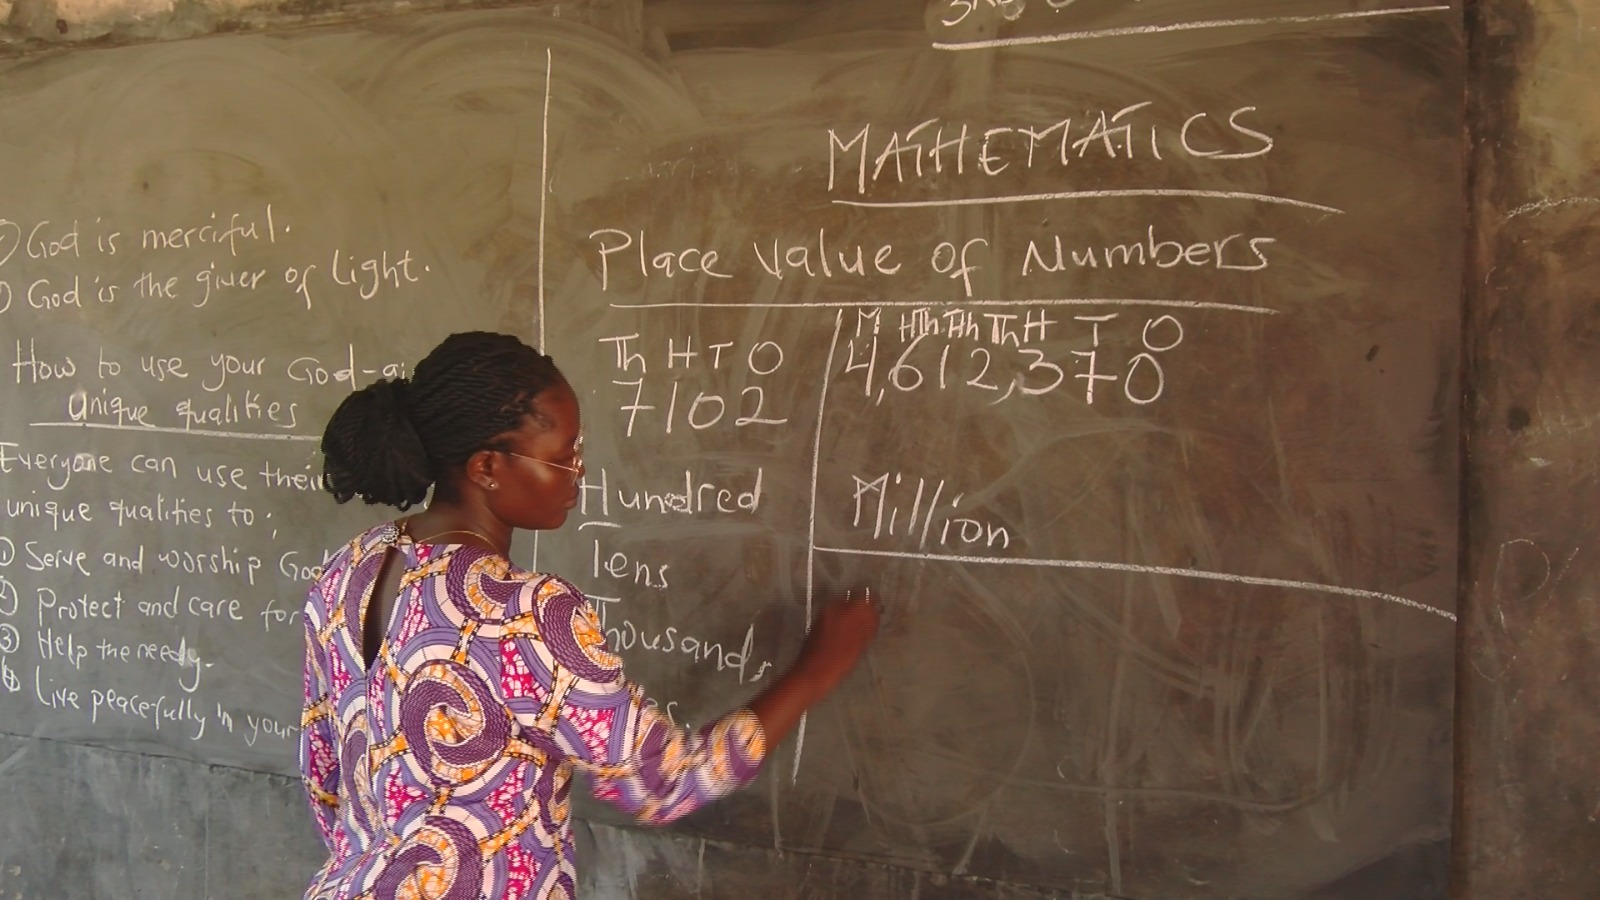 God is merciful.
God is the giver of light.
How to use your God-
unique qualities
Everyone can use their
unique qualities to;
① Serve and worship God
② Protect and care for
③ Help the needy.
④ Live peacefully in your
MATHEMATICS
Place Value of Numbers
Th H T O
7102
Hundred
Tens
Thousands
M HTh TTh Th H T O
4,612,370
Million